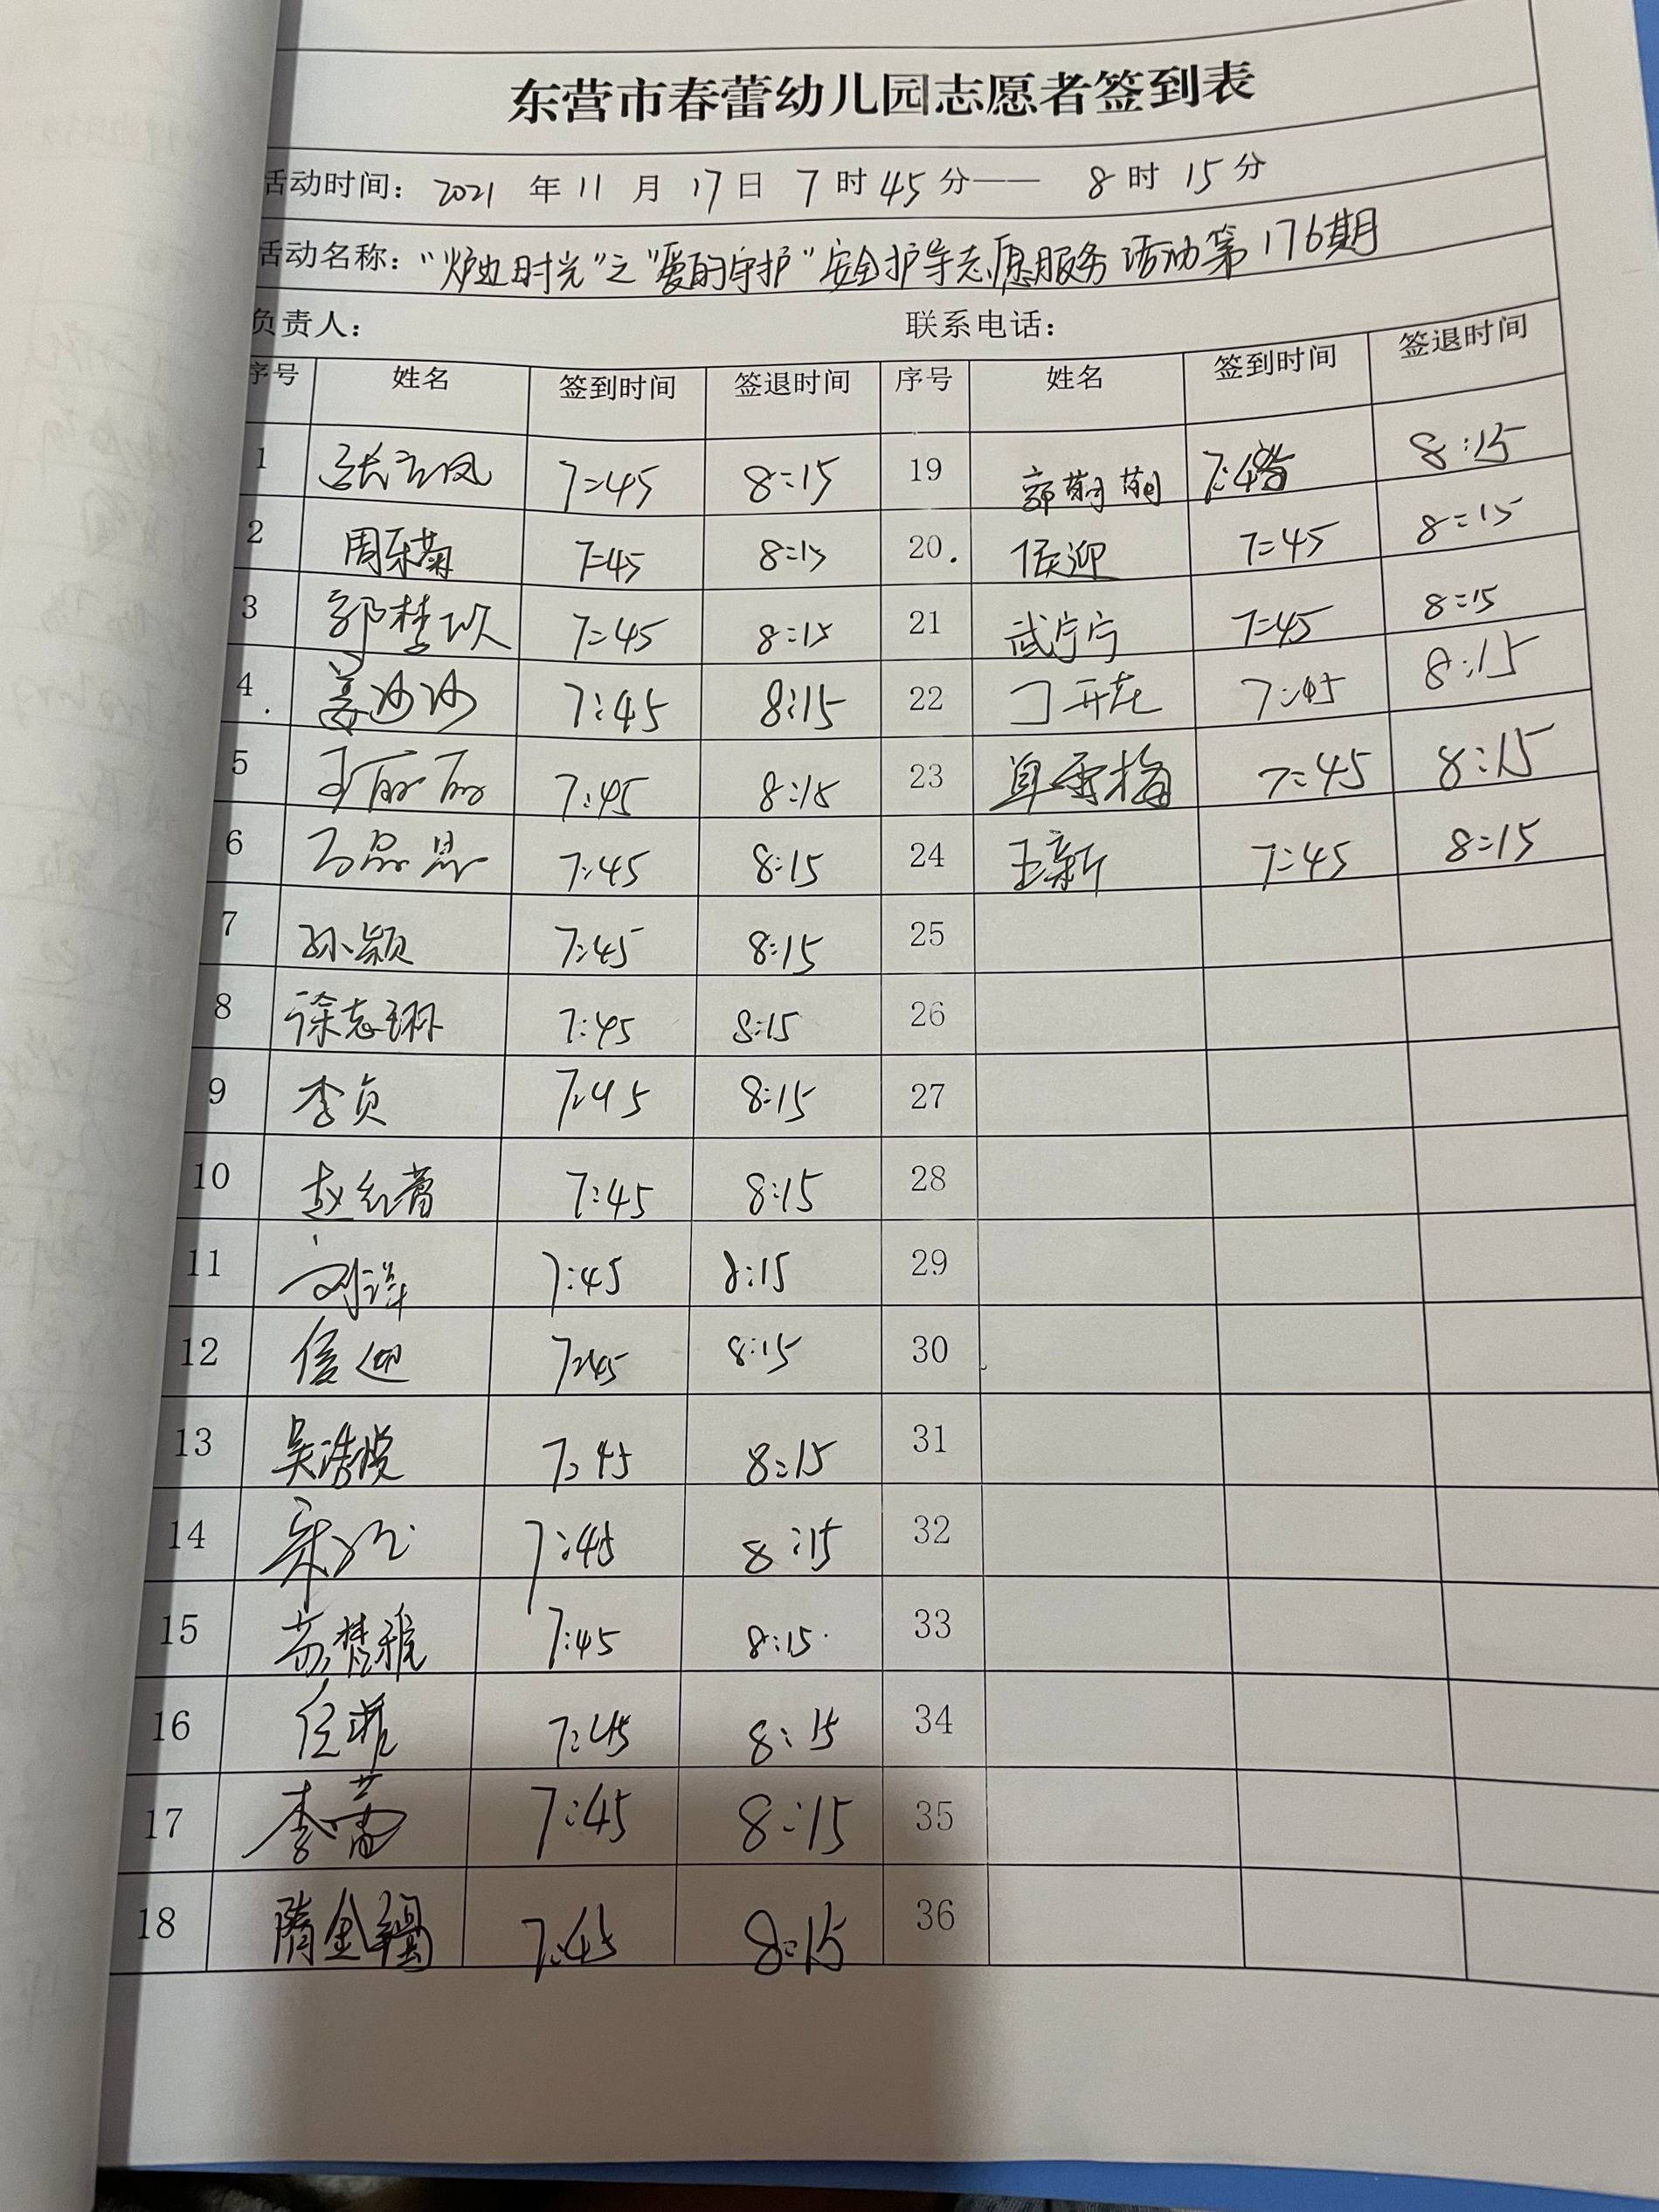 东营市春蕾幼儿园志愿者签到表
活动时间: 2021 年 11 月 17 日 7 时 45 分—— 8 时 15 分
活动名称: “炉边时光”之“爱的守护”安全护导志愿服务活动第176期
负责人: 联系电话:
序号 姓名 签到时间 签退时间 序号 姓名 签到时间 签退时间
1 7:45 8:15 19 郭萌萌 7:45 8:15
2 周乐菊 7:45 8:15 20 侯迎 7:45 8:15
3 郭梦欣 7:45 8:15 21 武宁宁 7:45 8:15
4 姜沙沙 7:45 8:15 22 7:45 8:15
5 王丽丽 7:45 8:15 23 单雪梅 7:45 8:15
6 7:45 8:15 24 王新 7:45 8:15
7 孙颖 7:45 8:15 25
8 徐志琳 7:45 8:15 26
9 李贞 7:45 8:15 27
10 赵红蕾 7:45 8:15 28
11 刘洋 7:45 8:15 29
12 7:45 8:15 30
13 吴浩悦 7:45 8:15 31
14 7:45 8:15 32
15 苏梦雅 7:45 8:15 33
16 任菲 7:45 8:15 34
17 李蕾 7:45 8:15 35
18 隋金 7:45 8:15 36